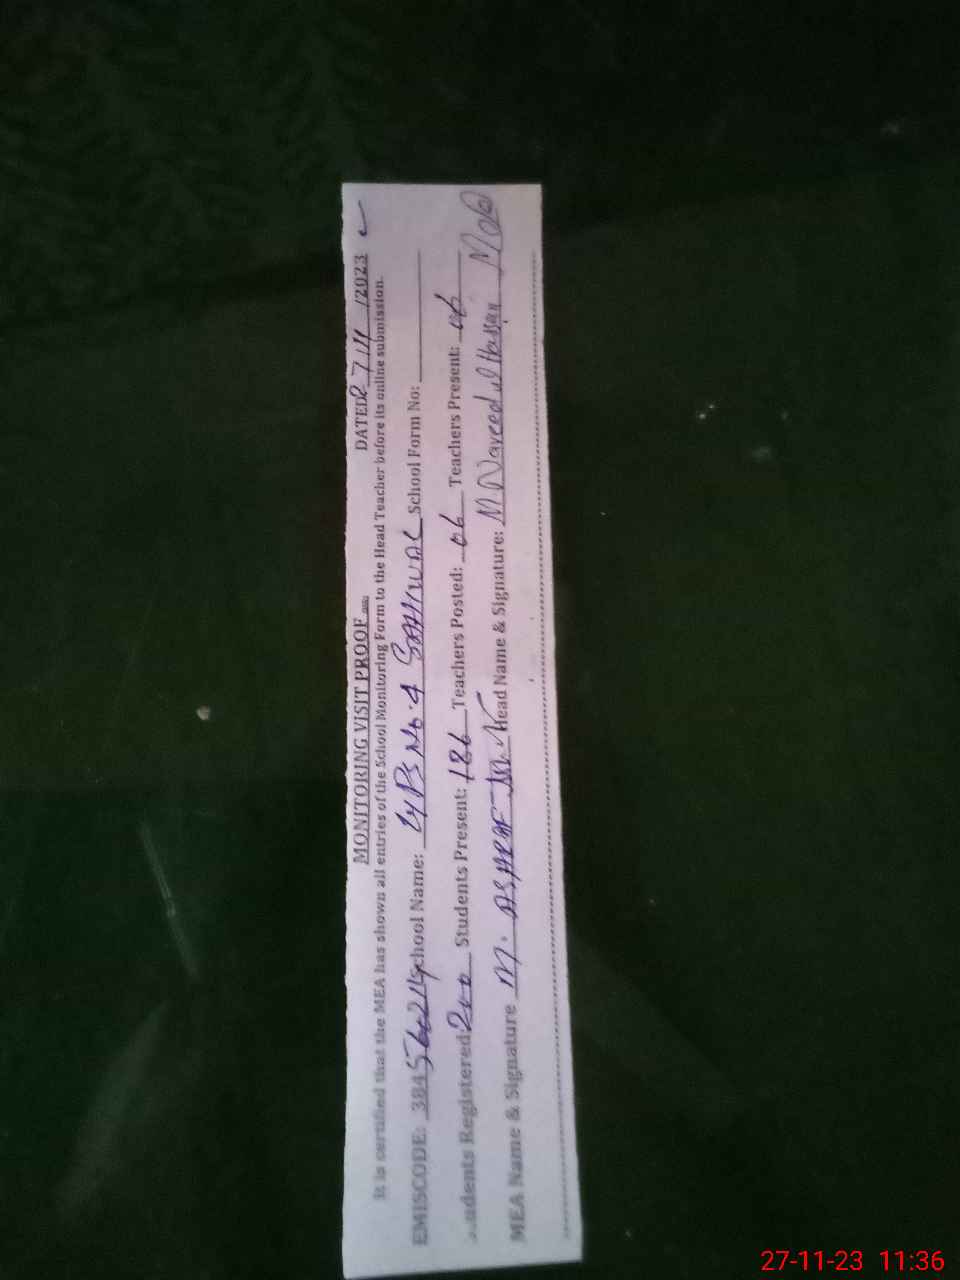 MONITORING VISIT PROOF DATED 27/11/2023
It is certified that the MEA has shown all entries of the School Monitoring Form to the Head Teacher before its online submission.
EMISCODE: 384 School Name: PS No. 4 SAHIWAL School Form No:
Students Registered: 200 Students Present: 186 Teachers Posted: 06 Teachers Present: 06
MEA Name & Signature M. ASHRAF Head Name & Signature: M Naveed ul Hassan
27-11-23 11:36